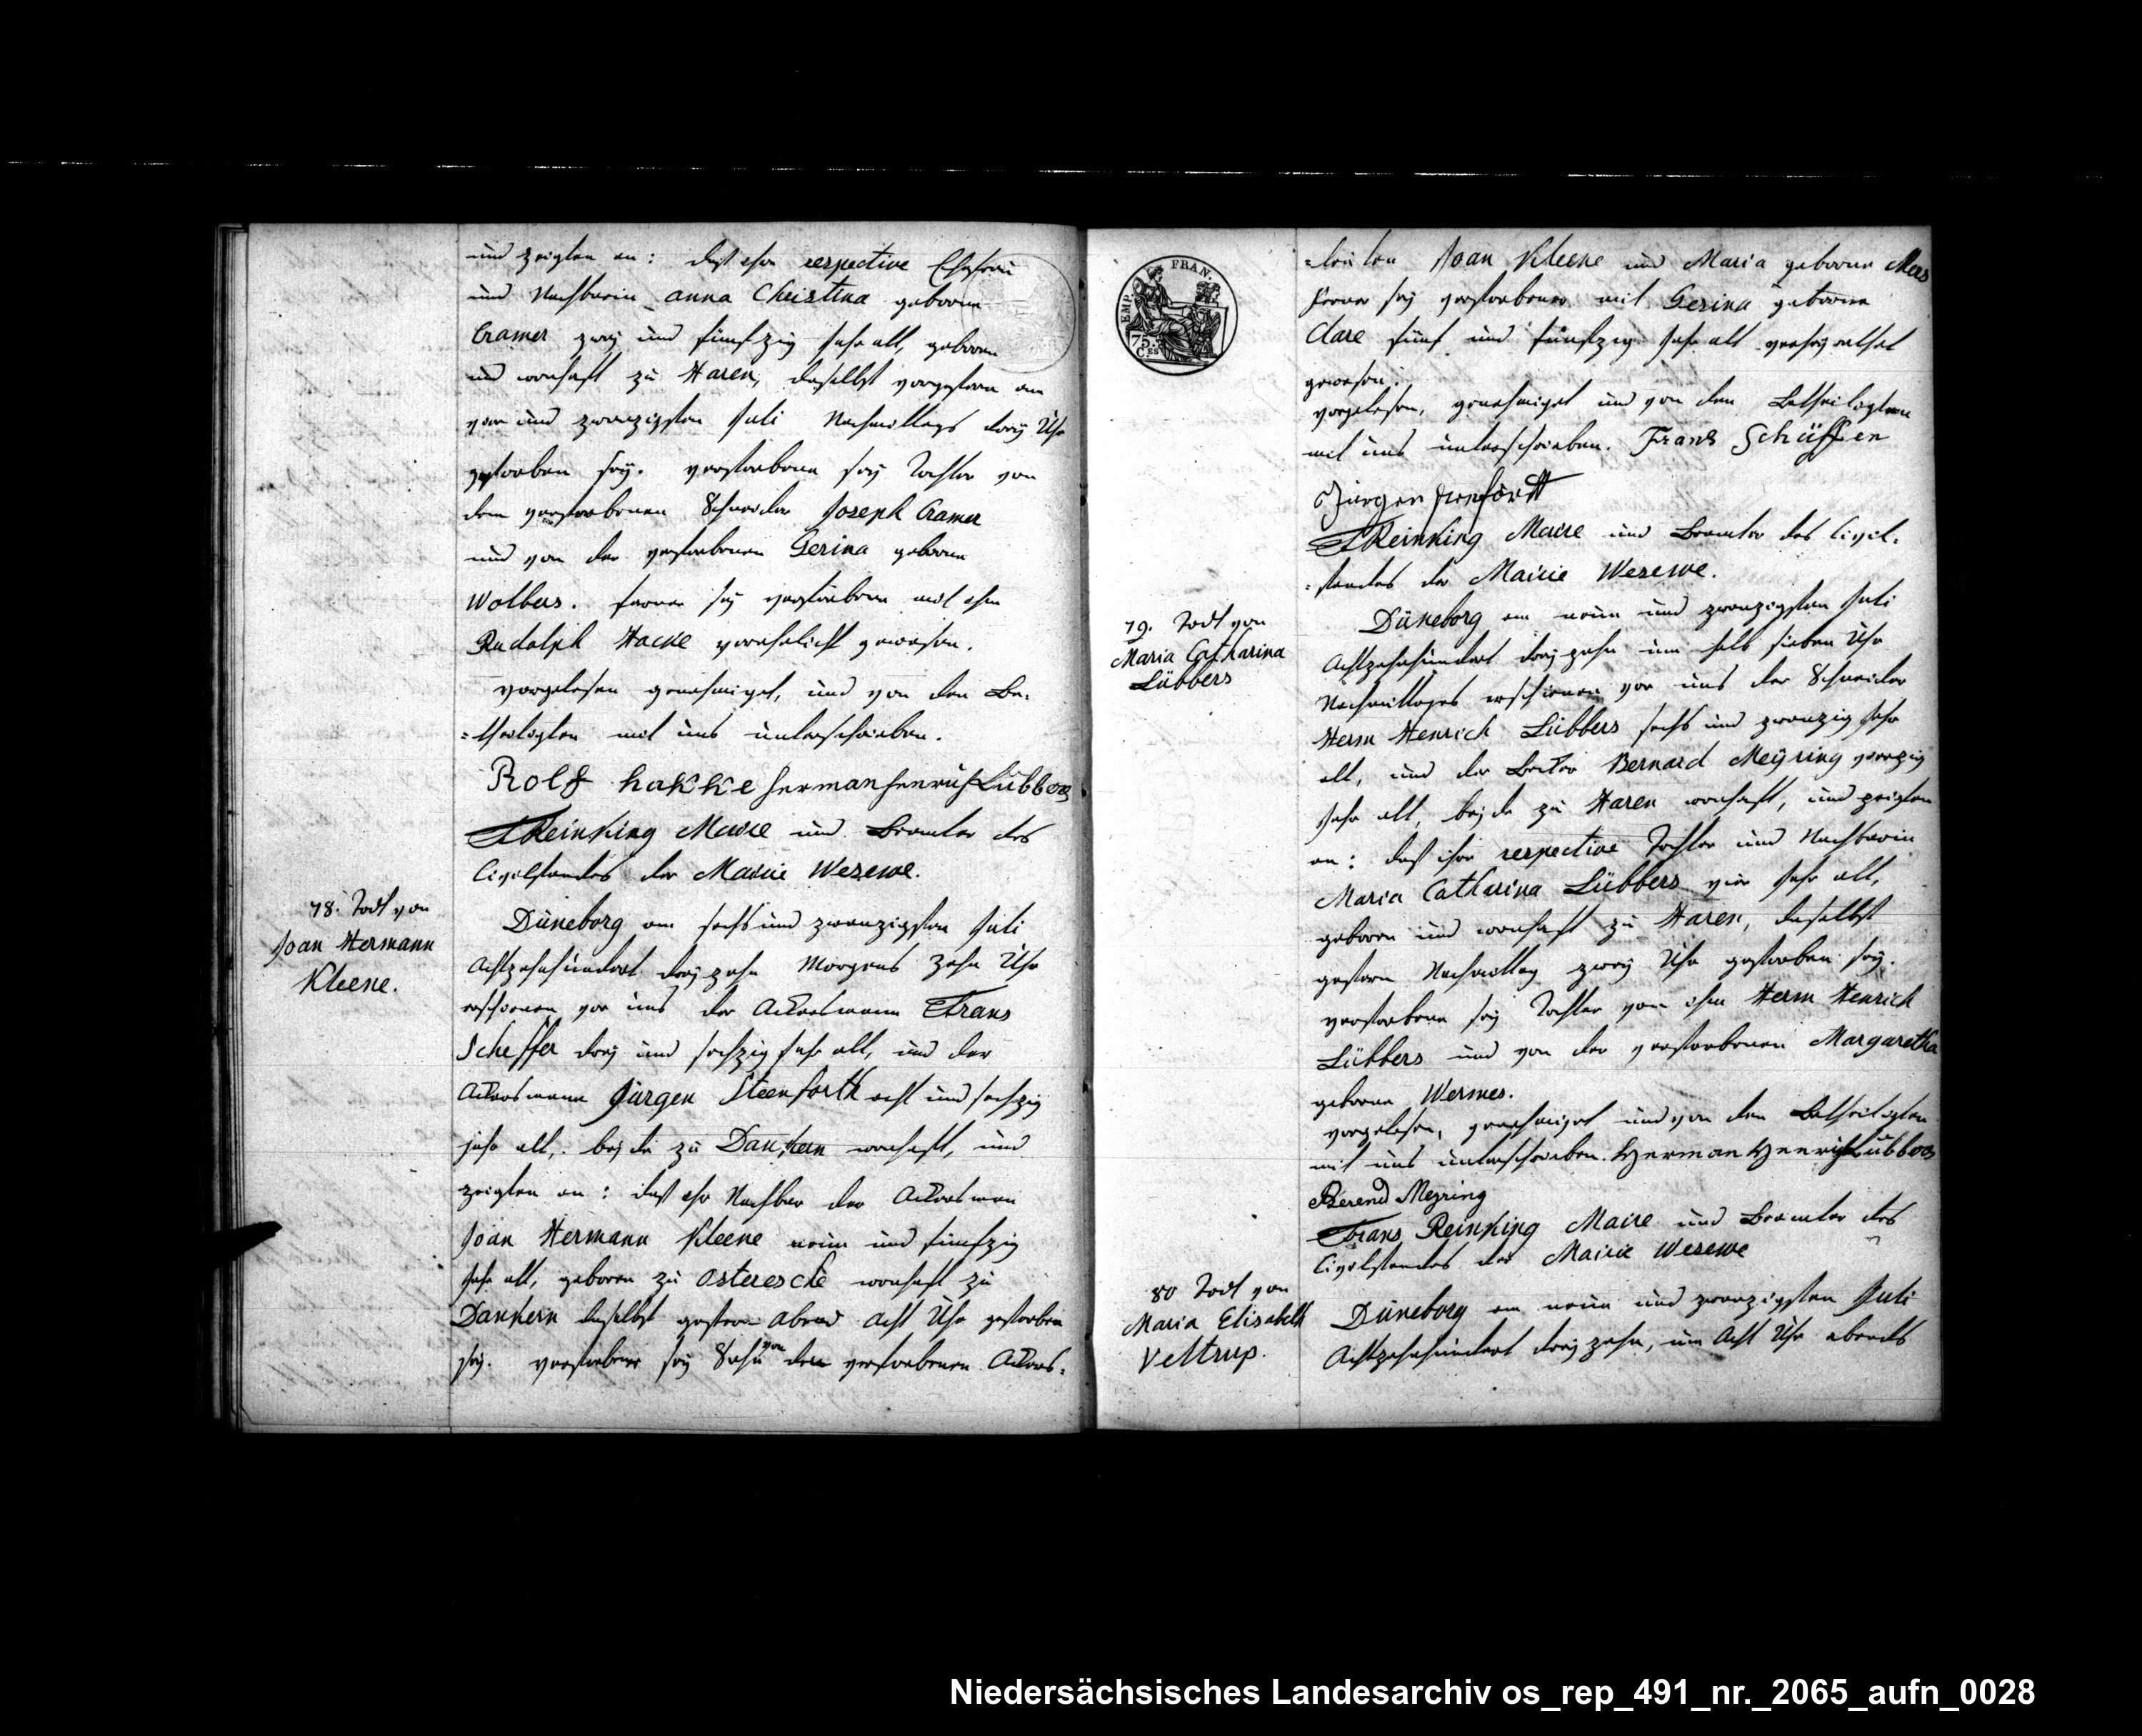 und zeigten an: daß ihre respective Ehefrau
und Nachbarin Anna Christina geborne
Cramer zwey und fünfzig Jahr alt, geboren
und wonhaft zu Haren, daselbst vorgestern am
vier und zwanzigsten Juli Nachmittags drey Uhr
gestorben sey. verstorbene sey Tochter von
dem verstorbenen Schneider Joseph Cramer
und von der verstorbenen Gesina geborne
Wolbers. ferner sey verstorbene mit ihm
Rudolph Hacke verehelicht gewesen.
vorgelesen genehmiget, und von den Be-
=theiligten mit uns unterschrieben.
Rolf hakke herman henrich Lübbers
FReinking Maire und Beamter des
Civilstandes der Mairie Wesewe.
78. Todt von
Joan Hermann
Kleene.
Düneborg am sechs und zwanzigsten Juli
Achtzehnhundert dreyzehn Morgens zehn Uhr
erschienen vor uns der Ackersmann Frans
Scheffer drey und sechzig Jahr alt, und der
Ackersmann Jürgen Steenforth acht und sechzig
Jahr alt, beyde zu Dankern wonhaft, und
zeigten an: daß ihr Nachbar der Ackersman
Joan Hermann Kleene neun und fünfzig
Jahr alt, geboren zu Osteresche wonhaft zu
Dankern daselbst gestern Abend Acht Uhr gestorben
sey. verstorbener sey Sohn von den verstorbenen Ackers=
EMP. FRAN.
75.
CES
=leuten Joan Kleene und Maria geborne Mers
ferner sey verstorbener mit Gesina geborne
Clare fünf und fünfzig Jahr alt verheyrathet
gewesen.
vorgelesen, genehmiget und von den Betheiligten
mit uns unterschrieben. Frans Schäffer
Jürgen
FReinking Maire und Beamter des Civil=
=standes der Mairie Wesewe.
79. Todt von
Maria Catharina
Lübbers
Düneborg am neun und zwanzigsten Juli
Achtzehnhundert dreyzehn um halb sieben Uhr
Nachmittages erschienen vor uns der Schneider
Herm Henrich Lübbers sechs und zwanzig Jahr
alt, und der Bernard Meÿring vierzig
Jahr alt, beyde zu Haren wonhaft, und zeigten
an: daß ihre respective Tochter und Nachbarin
Maria Catharina Lübbers vier Jahr alt,
geboren und wonhaft zu Haren, daselbst
gestern Nachmittag zwey Uhr gestorben sey.
verstorbene sey Tochter von ihm Herm Henrich
Lübbers und von der verstorbenen Margaretha
geborne Wermes.
vorgelesen, genehmiget und von den Betheiligten
mit uns unterschrieben. Herman Henrich Lübbers
Berend Meyring
Frans Reinking Maire und Beamter des
Civilstandes der Mairie Wesewe
80 Todt von
Maria Elisabeth
Veltrup.
Düneborg am neun und zwanzigsten Juli
Achtzehnhundert dreyzehn, um Acht Uhr abends
Niedersächsisches Landesarchiv os_rep_491_nr._2065_aufn_0028